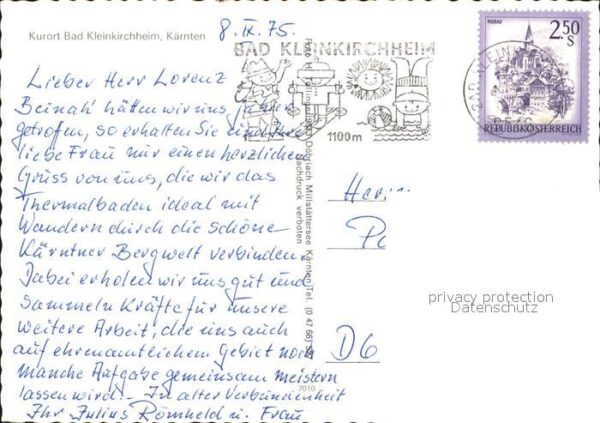 Kurort Bad Kleinkirchheim, Kärnten
8. IX. 75.
BAD KLEINKIRCHHEIM
1100m
MURAU
2.50
S
REPUBLIK ÖSTERREICH
Lieber Herr Lorenz!
Beinah' hätten wir uns
getrofen, so erhalten Sie und Ihre
liebe Frau nur einen herzlichen
Gruss von uns, die wir das
Thermalbaden ideal mit
Wandern durch die schöne
Kärntner Bergwelt verbinden.
Dabei erholen wir uns gut und
sammeln Kräfte für unsere
weitere Arbeit, die uns auch
auf ehrenamtlichem Gebiet noch
manche Aufgabe gemeinsam meistern
lassen wird. – In alter Verbundenheit
Ihr Julius Römheld u. Frau
Döbriach Millstättersee Kärnten Tel. (0 47 66)
Nachdruck verboten
7010
Herrn
D6
privacy protection
Datenschutz